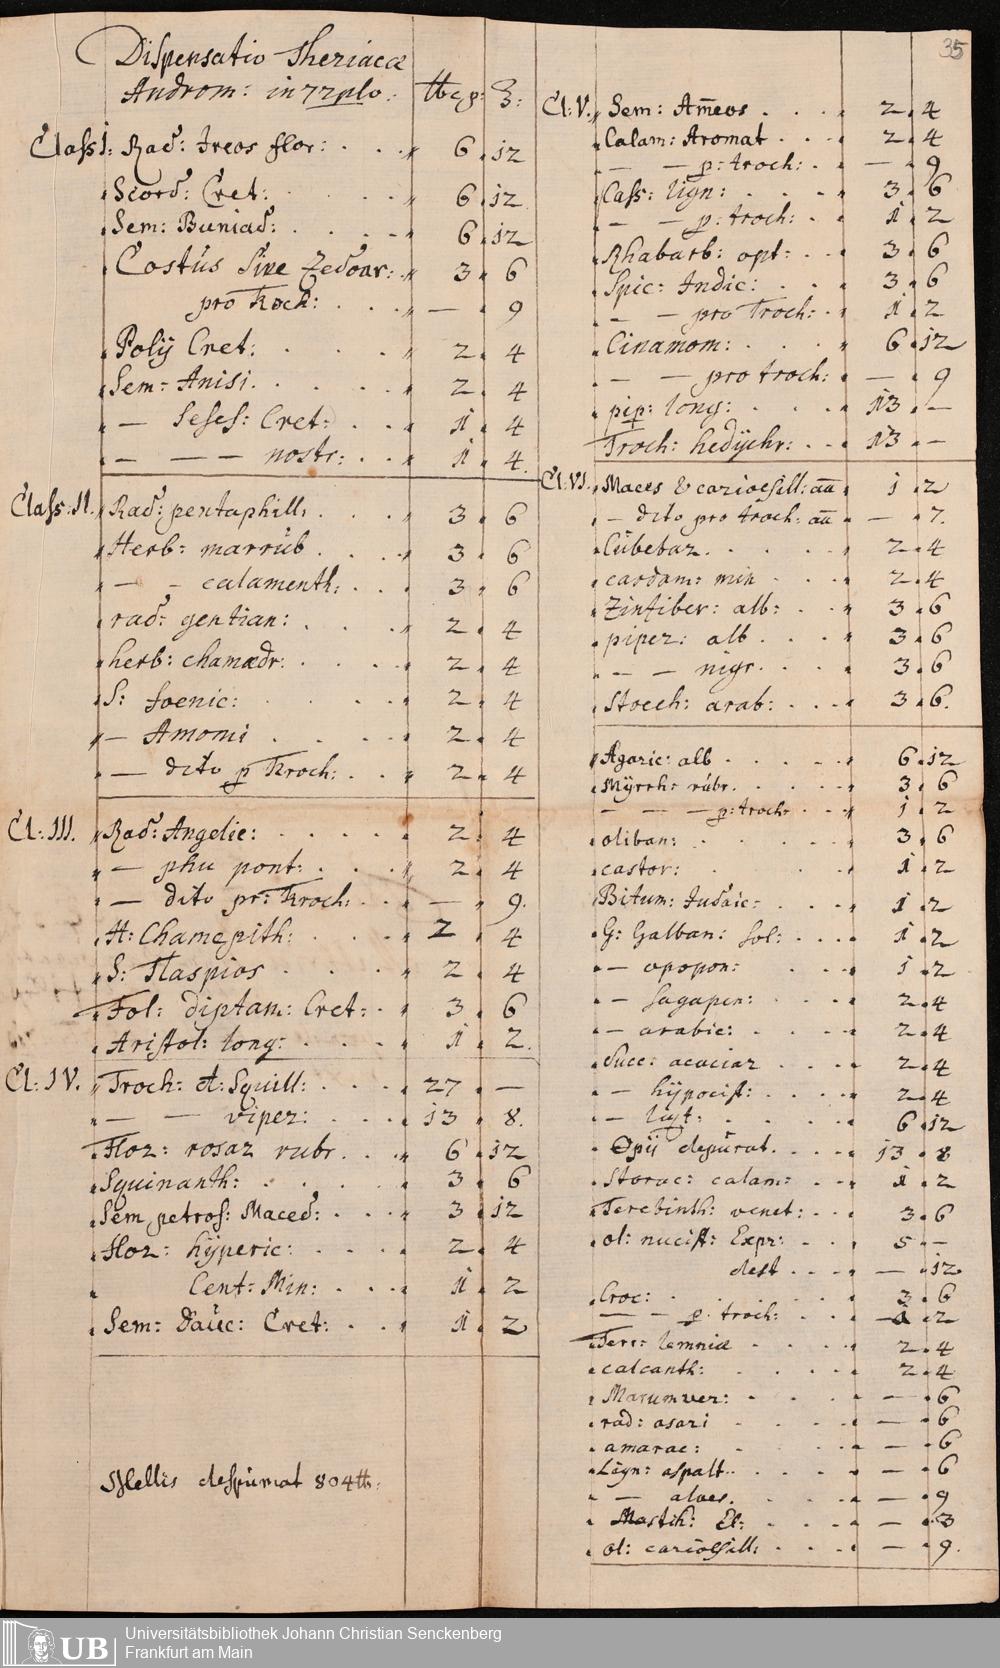 35
Dispensatio Theriacæ
Androm: in 72plo. ℔ cp: ℥:
Class I: Rad: Ireos flor: 6 . 12
Scord: Cret: 6 . 12
Sem: Buniad: 6 . 12
Costus sive Zedoar: 3 . 6
pro Troch: — . 9
Polij Cret: 2 . 4
Sem: Anisi 2 . 4
— Seses: Cret: 1 . 4
— — — nostr: 1 . 4
Class. II. Rad: pentaphill: 3 . 6
Herb: marrub 3 . 6
— - calamenth: 3 . 6
rad: gentian: 2 . 4
herb: chamædr: 2 . 4
S: foenic: 2 . 4
— Amomi 2 . 4
— dito p Troch: 2 . 4
Cl: III. Rad: Angelic: 2 . 4
— phu pont: 2 . 4
— dito pr: Troch: — . 9.
H: Chamepith: 2 . 4
S: Tlaspios 2 . 4
Fol: diptam: Cret: 3 . 6
Aristol: long: 1 . 2.
Cl: IV. Troch: d: Squill: 27 . —
— — viper: 13 . 8.
Flor: rosar rubr. 6 . 12
Squinanth: 3 . 6
Sem petros: Maced: 3 . 12
flor: hijperic: 2 . 4
Cent: Min: 1 . 2
Sem: Dauc: Cret: 1 . 2
Mellis despumat 804 ℔:
Cl: V. Sem: Am̄eos 2 . 4
Calam: Aromat 2 . 4
— p: troch: — . 9
Cass: lign: 3 . 6
— — p: troch: 1 . 2
Rhabarb: opt: 3 . 6
Spic: Indic: 3 . 6
— — pro Troch: 1 . 2
Cinamom: 6 . 12
— — pro troch: — . 9
pip: long: 13 . —
Troch: hedijchr: 13 . —
Cl: VI. Maces & cariofill: aa 1 . 2
— dito pro troch: aa — . 7.
Cubebar. 2 . 4
cardam: min 2 . 4
Zintiber: alb: 3 . 6
piper: alb 3 . 6
— — nigr. 3 . 6
Stoech: arab: 3 . 6.
Agaric: alb 6 . 12
Myrrh: rubr. 3 . 6
— — — p: troch 1 . 2
oliban: 3 . 6
castor: 1 . 2
Bitum: Judaic: 1 . 2
G: Galban: sol: 1 . 2
— opopon: 1 . 2
— sagapen: 2 . 4
— arabic: 2 . 4
Succ: acaciar 2 . 4
— hijpocist: 2 . 4
— 6 . 12
Opij depurat. 13 . 8
Storac: calam: 1 . 2
Terebinth: venet: 3 . 6
ol: nucist: Expr: 5 —
dest — . 12
Croc: 3 . 6
— — p. troch: 1 . 2
Terr: lemniæ 2 . 4
calcanth: 2 . 4
Marum ver: — . 6
rad: asari — . 6
amarac: — . 6
Lign: aspalt. — . 6
— aloes. — . 9
Mastih: El: — . 3
ol: cariofill: — . 9.
UB
Universitätsbibliothek Johann Christian Senckenberg
Frankfurt am Main